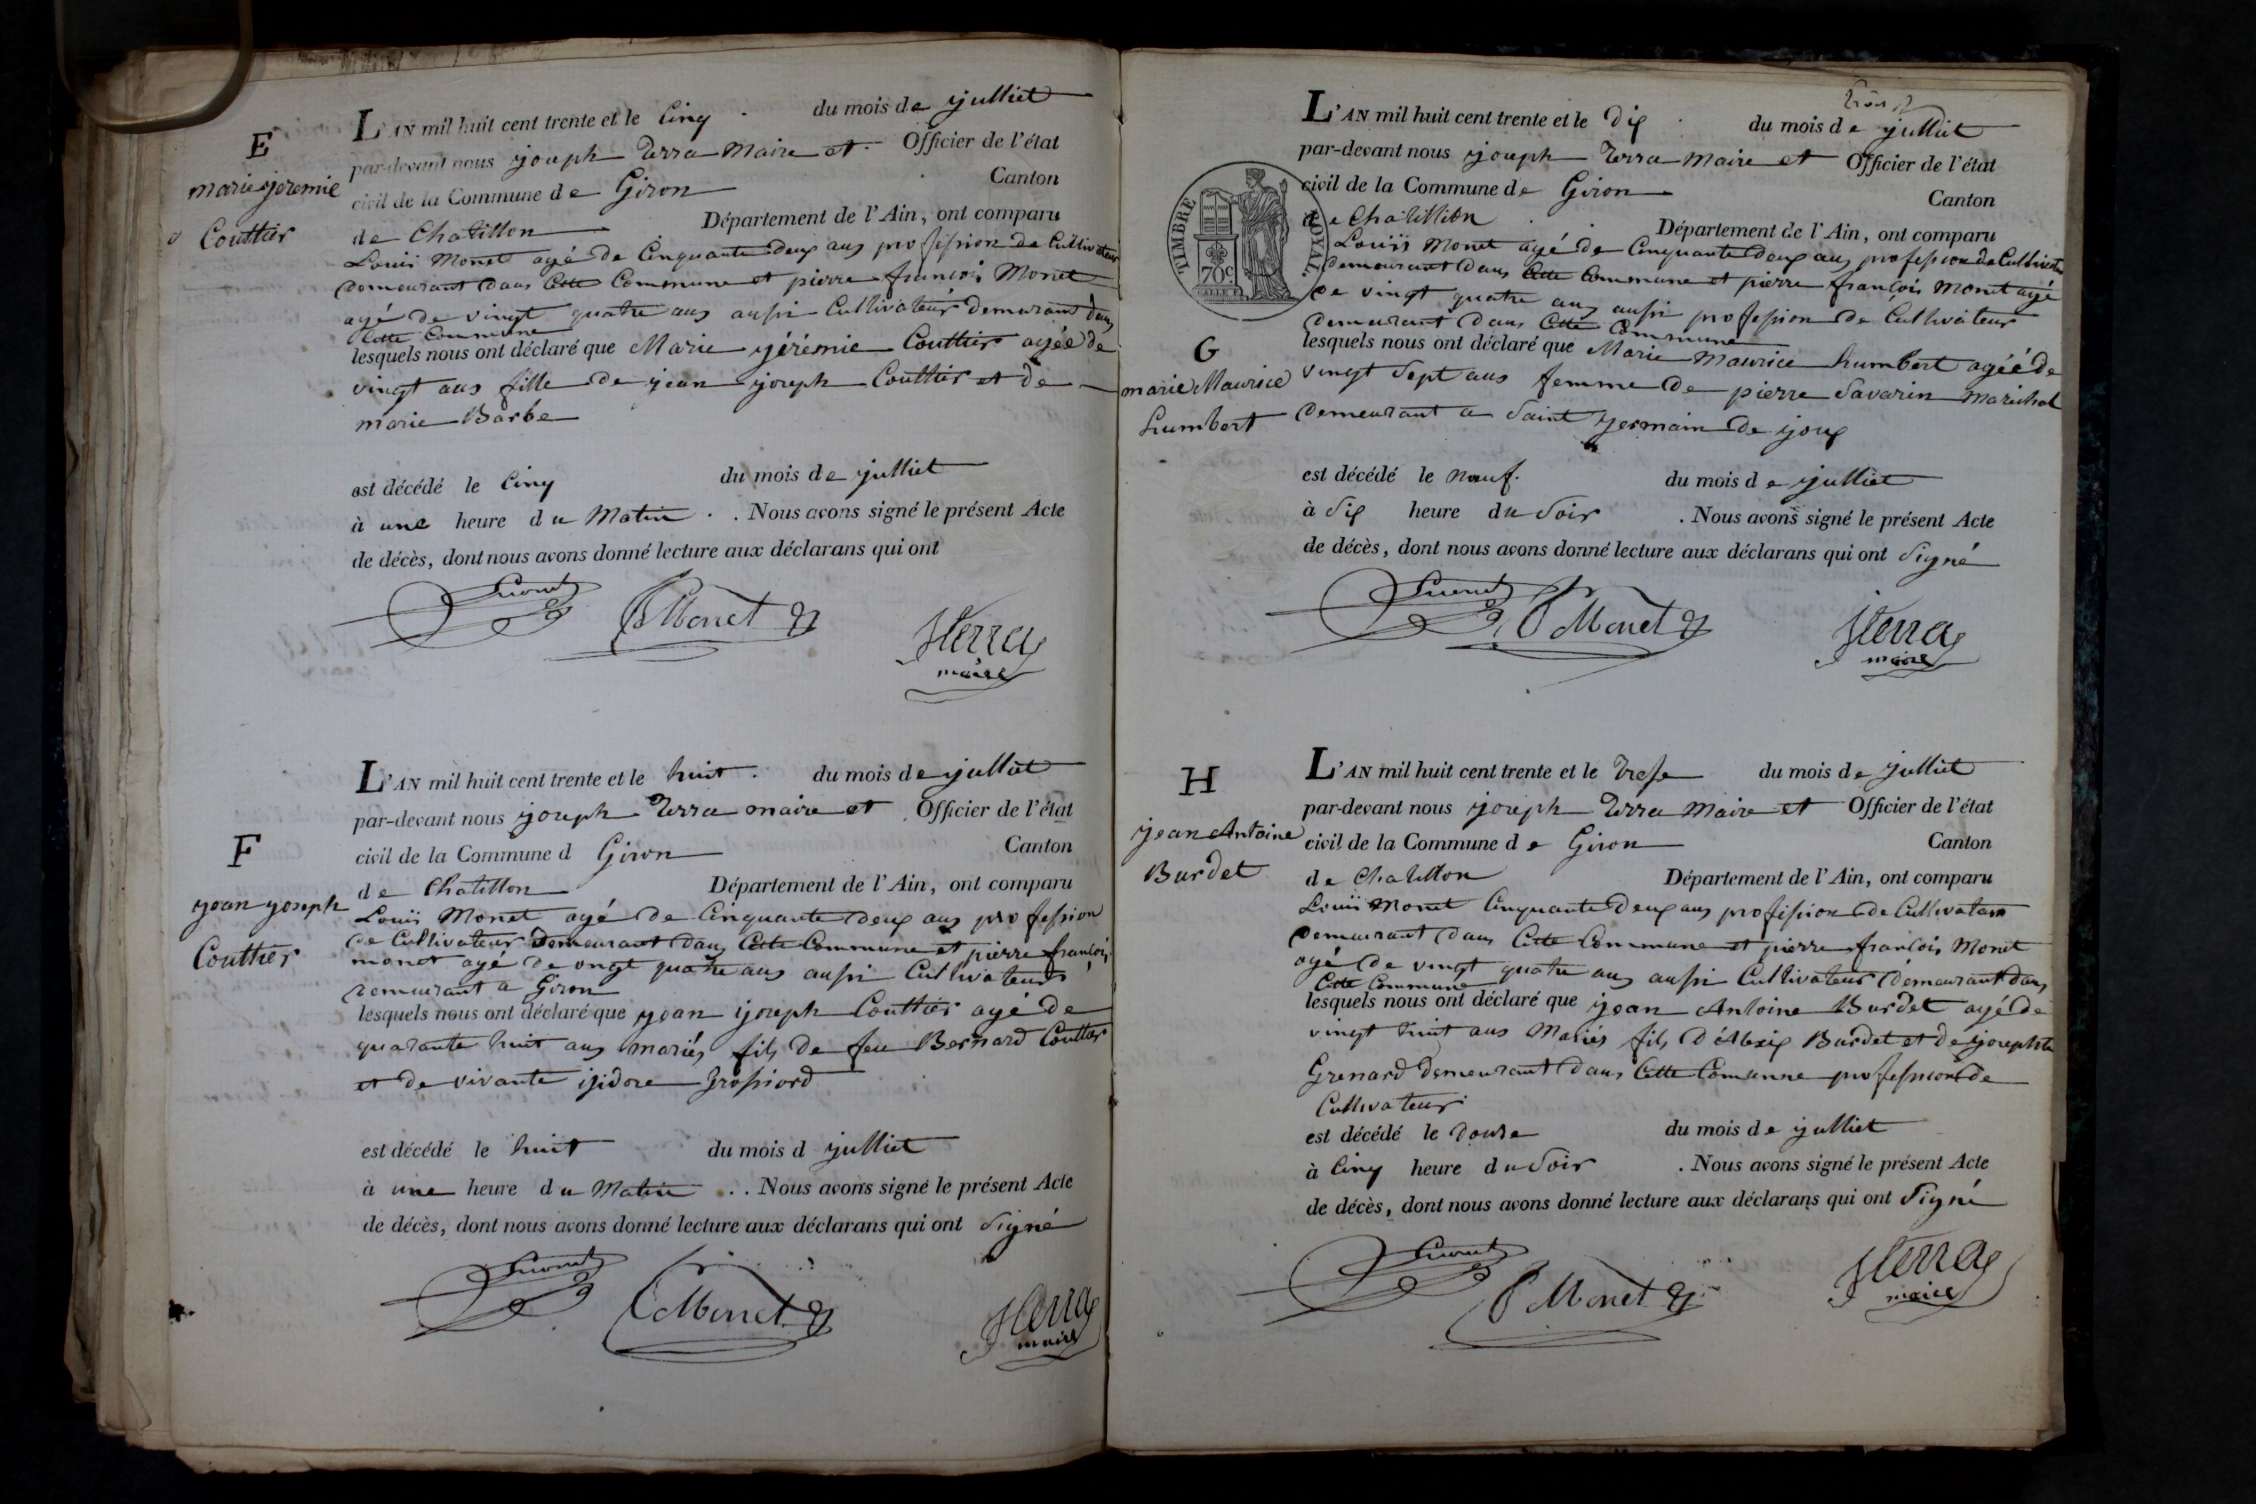 E
marie yeremie
Couttier
L'AN mil huit cent trente et le Cinq du mois de yulliet
par-devant nous yoseph Terra Maire et Officier de l'état
civil de la Commune de Giron Canton
de Chatillon Département de l'Ain, ont comparu
Louii Monet agé de Cinquante deux ans profession de Cultivateur
Demeurant Dans Cette Commune et pierre francois Monet
agé de vingt quatre ans aussi Cultivateur demurant dans
Cette Commune
lesquels nous ont déclaré que Marie yérémie Couttier agéé de
vingt ans fille de jean yoseph Couttier et de
marie Barbe
est décédé le Cinq du mois de yulliet
à une heure du Matin . . Nous avons signé le présent Acte
de décès, dont nous avons donné lecture aux déclarans qui ont
Monet Monet JTerra
maire
F
yean yoseph
Couttier
L'AN mil huit cent trente et le huit . du mois de yulliet
par-devant nous yoseph Terra maire et Officier de l'état
civil de la Commune d Giron Canton
de Chatillon Département de l'Ain, ont comparu
Louii Monet agé de Cinquante deux ans profession
de Cultivateur Demeurant Dans Cette Commune et pierre francois
monet agé de vngt quatre ans aussi Cultivateur
Demeurant a Giron
lesquels nous ont déclaré que yean yoseph Couttier agé de
quarante huit ans mariés fils de feu Bernard Couttier
et de vivante isidore Grossiord
est décédé le huit du mois d yulliet
à une heure du Matin . . Nous avons signé le présent Acte
de décès, dont nous avons donné lecture aux déclarans qui ont Signé
Monet Monet JTerra
maire
TIMBRE ROYAL.
70c
G
marie Maurice
humbert
L'AN mil huit cent trente et le Dix du mois de yulliet
par-devant nous yoseph Terra Maire et Officier de l'état
civil de la Commune de Giron Canton
de Chatillion Département de l'Ain, ont comparu
Louii Monet agé de Cinquante deux ans profession de Cultivateur
Demeurant Dans Cette Commune et pierre françois Monet agé
de vingt quatre ans aussi profession de Cultivateur
Demeurant Dans Cette Commune
lesquels nous ont déclaré que Marie Maurice humbert agéé de
vingt Sept ans femme de pierre Savarin Maréchal
Demeurant a Saint Germain de youx
est décédé le neuf. du mois de yulliet
à Six heure du Soir . Nous avons signé le présent Acte
de décès, dont nous avons donné lecture aux déclarans qui ont Signé
Monet Monet JTerra
maire
H
yean Antoine
Burdet
L'AN mil huit cent trente et le Trese du mois de yulliet
par-devant nous yoseph Terra Maire et Officier de l'état
civil de la Commune de Giron Canton
de Chatillon Département de l'Ain, ont comparu
Louii Monet Cinquante Deux ans profission de Cultivateur
Demeurant Dans Cette Commune et pierre francois Monet
agé de vingt quatre ans aussi Cultivateur Demeurant Dans
Cette Commune
lesquels nous ont déclaré que yean Antoine Burdet agé de
vingt huit ans Mariés fils D'Alexis Burdet et de yosephte
Grenard Demeurant Dans Cette Comunne profession de
Cultivateur
est décédé le Douse du mois de yulliet
à Cinq heure du Soir . Nous avons signé le présent Acte
de décès, dont nous avons donné lecture aux déclarans qui ont Signé
Monet Monet JTerra
maire